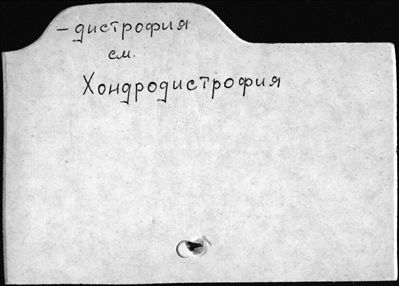 – дистрофия
см.
Хондродистрофия